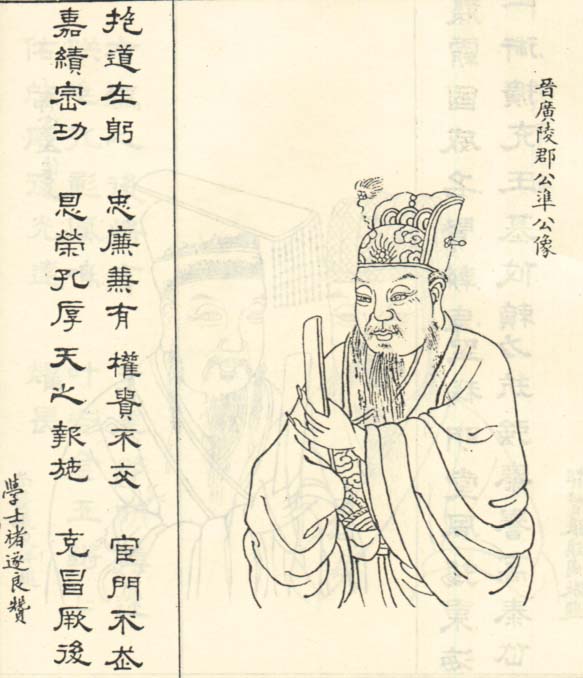 晉廣陵郡公準公像
抱道在躬 忠廉兼有 權貴不交 宦門不走
嘉績宻功 恩榮孔厚 天之報施 克昌厥後
學士褚遂良贊